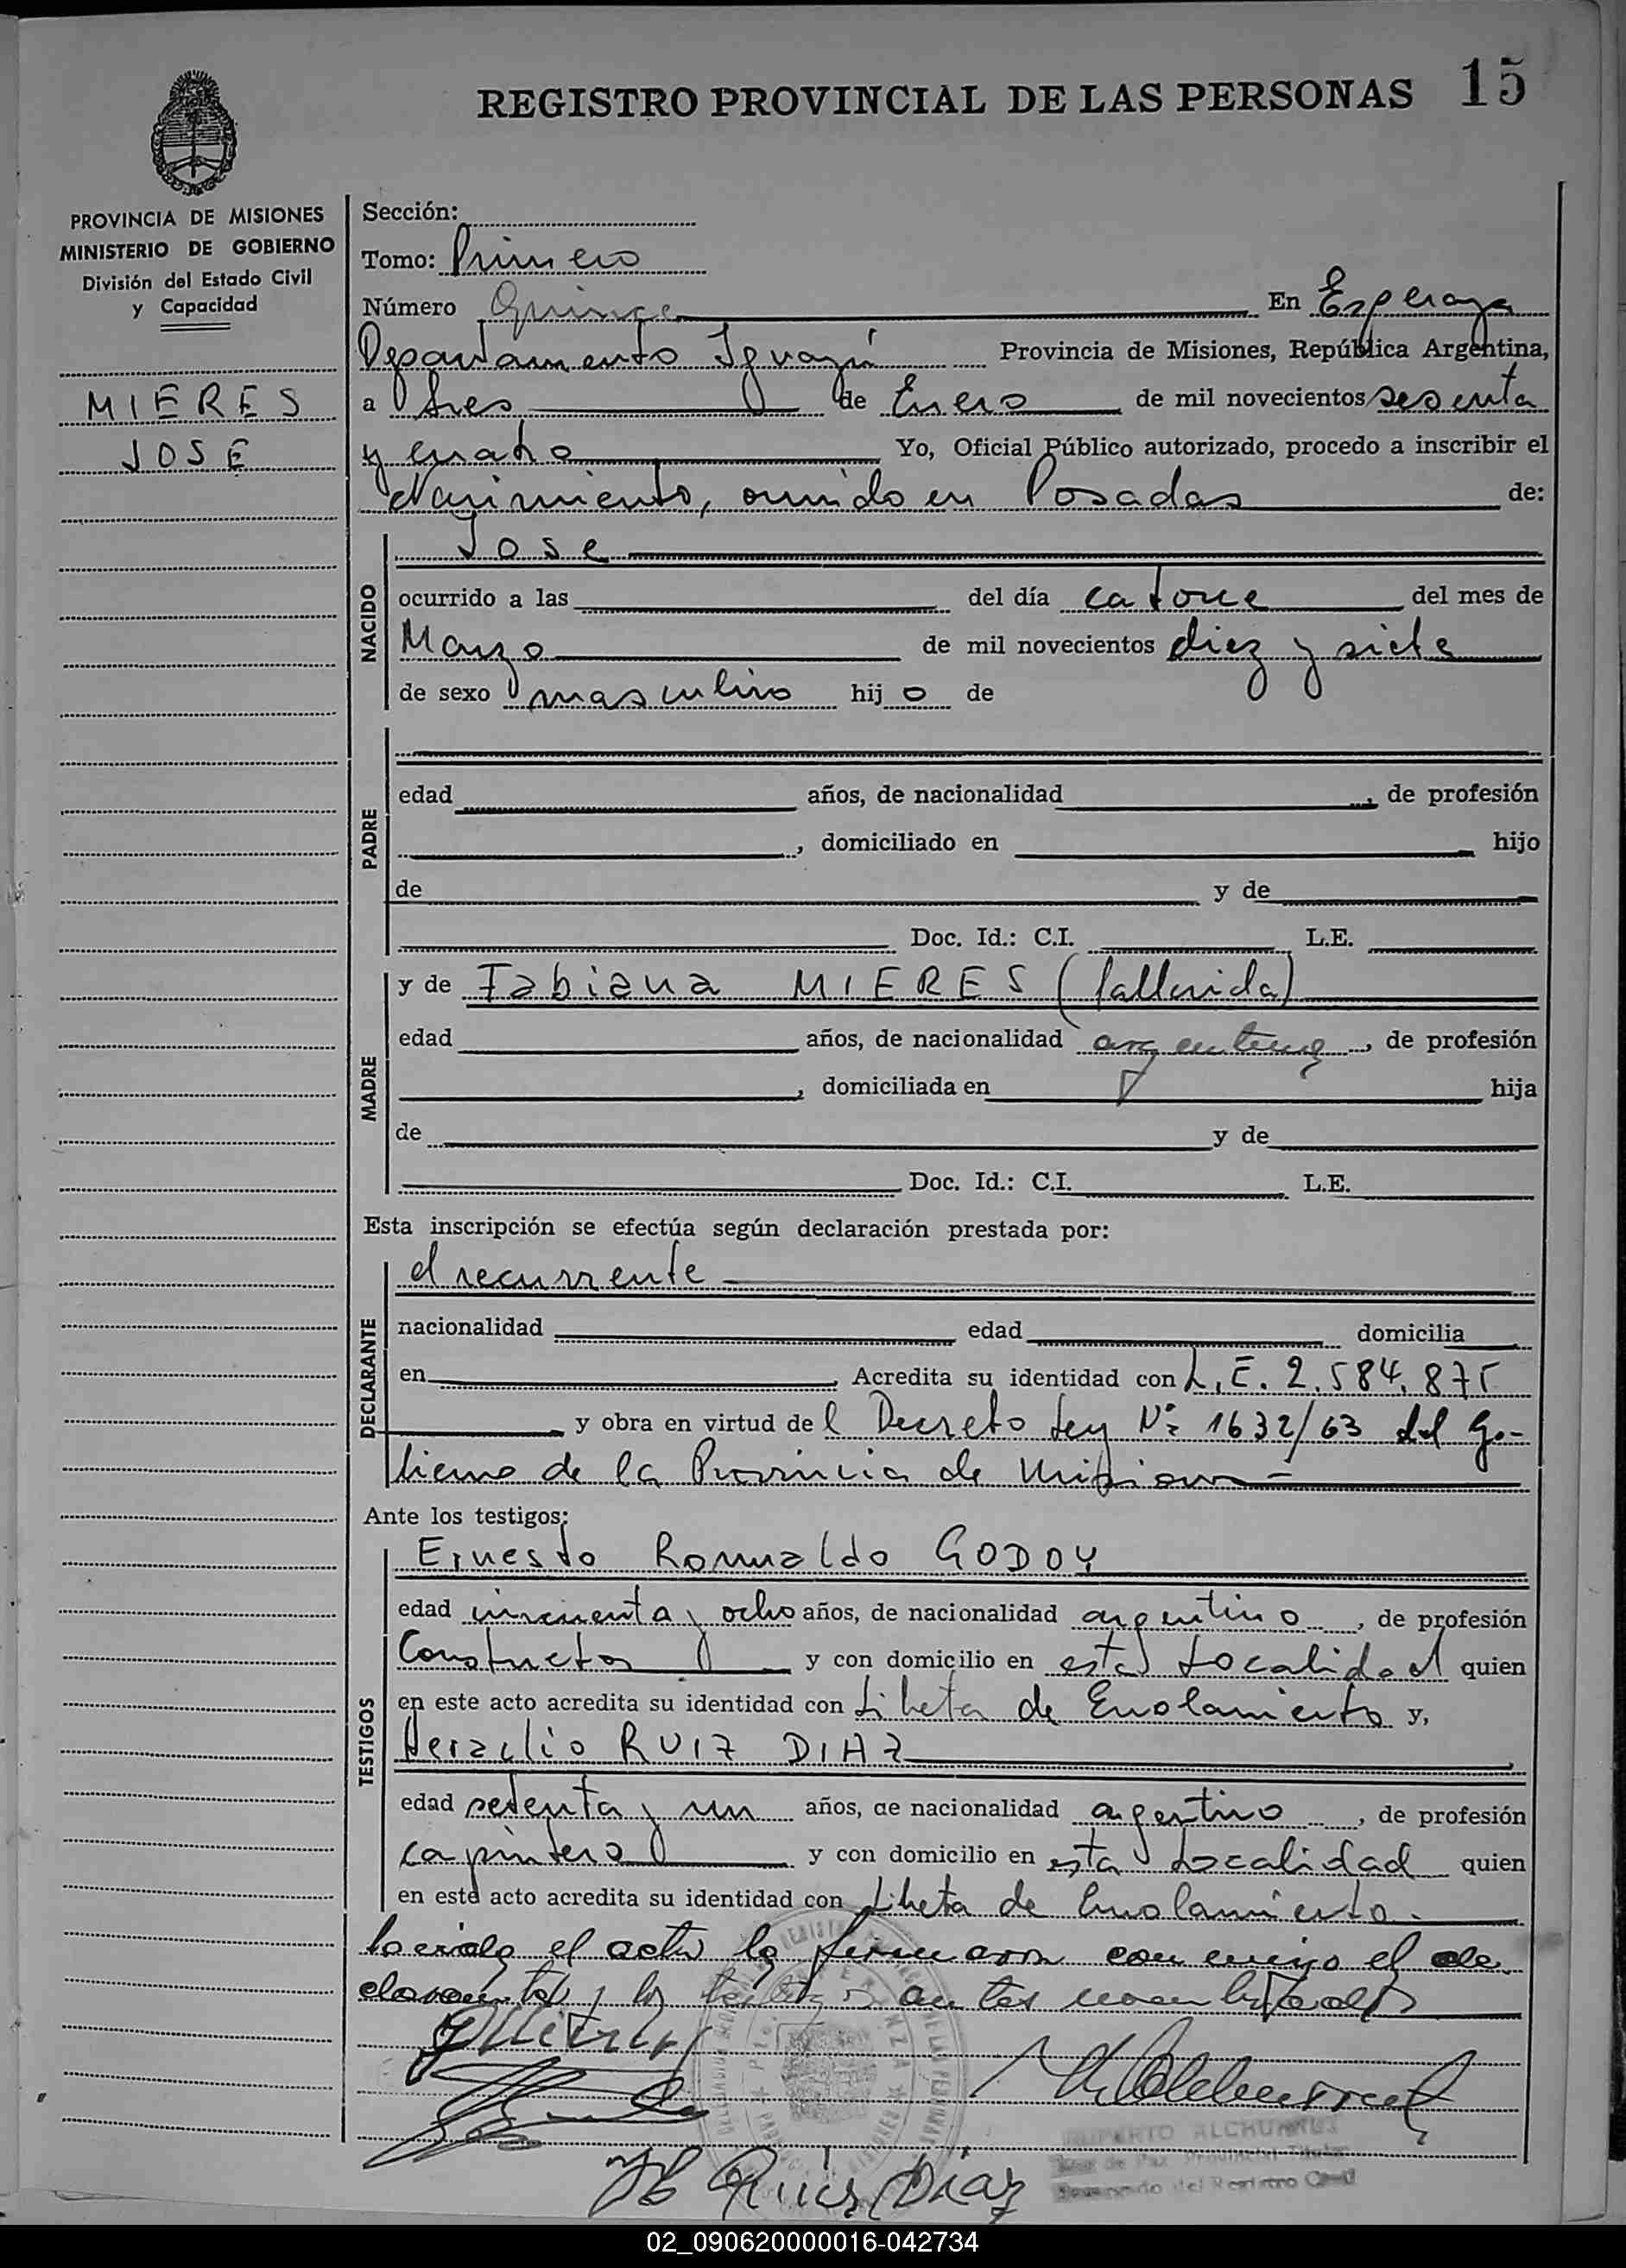 REGISTRO PROVINCIAL DE LAS PERSONAS 15
PROVINCIA DE MISIONES
MINISTERIO DE GOBIERNO
División del Estado Civil
y Capacidad
MIERES
JOSE
Sección:
Tomo: Primero
Número Quince En Esperanza
Departamento Iguazú Provincia de Misiones, República Argentina,
a tres de Enero de mil novecientos sesenta
y cuatro Yo, Oficial Público autorizado, procedo a inscribir el
Nacimiento, ocurrido en Posadas de:
NACIDO
Jose
ocurrido a las del día catorce del mes de
Marzo de mil novecientos diez y siete
de sexo masculino hijo de
PADRE
edad años, de nacionalidad , de profesión
, domiciliado en hijo
de y de
Doc. Id.: C.I. L.E.
MADRE
y de Fabiana MIERES (fallecida)
edad años, de nacionalidad argentina, de profesión
, domiciliada en hija
de y de
Doc. Id.: C.I. L.E.
Esta inscripción se efectúa según declaración prestada por:
DECLARANTE
el recurrente
nacionalidad edad domicilia
en Acredita su identidad con L.E. 2.584.875
y obra en virtud del Decreto Ley Nº 1632/63 del Go-
bierno de la Provincia de Misiones
Ante los testigos:
TESTIGOS
Ernesto Romualdo GODOY
edad cincuenta y ocho años, de nacionalidad argentino, de profesión
Constructor y con domicilio en esta Localidad quien
en este acto acredita su identidad con Libreta de Enrolamiento y,
Heraclio RUIZ DIAZ
edad setenta y un años, de nacionalidad argentino, de profesión
carpintero y con domicilio en esta Localidad quien
en este acto acredita su identidad con Libreta de Enrolamiento.
Leida el acta la firmaron conmigo el de
clarante y los testigos antes nombrados
H Ruiz Diaz
02_090620000016-042734